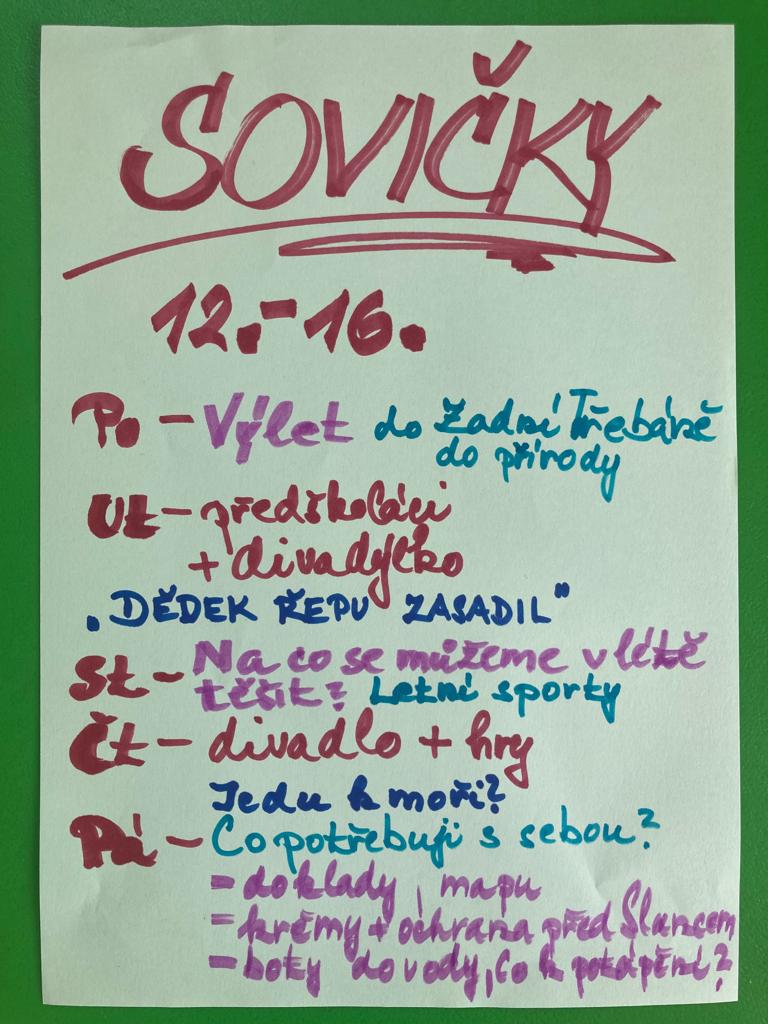 SOVIČKY
12.-16.
Po - Výlet do Zadní Třebáně
do přírody
Út - předškoláci
+ divadýlko
„DĚDEK ŘEPU ZASADIL"
St - Na co se můžeme v létě
těšit? Letní sporty
Čt - divadlo + hry
Jedu k moři?
Pá - Co potřebuji s sebou?
- doklady, mapu
- krémy + ochrana před Sluncem
- boty do vody, Co k potápění?